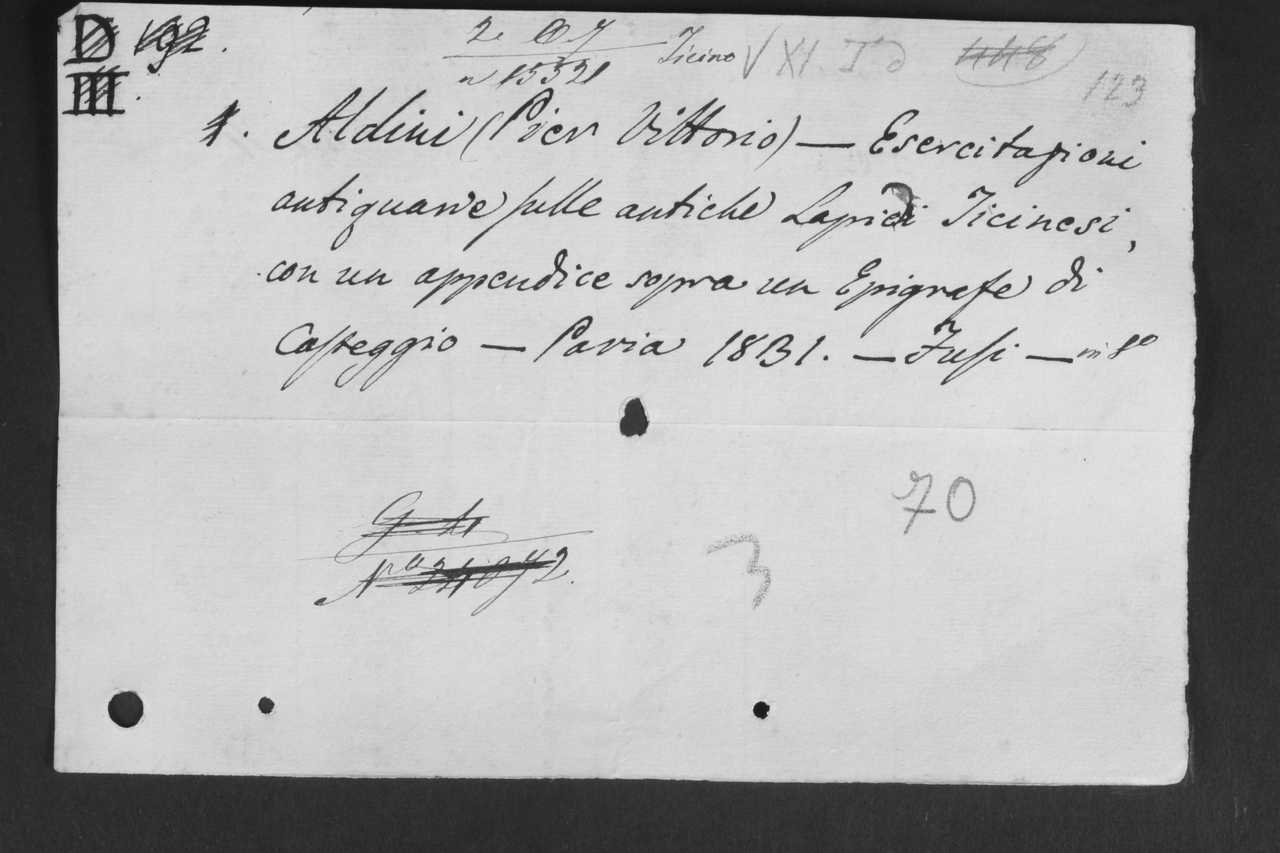 D 192.
III.
2.
n 15321
Ticino
XI. I d
448
123
1. Aldini (Pier Vittorio) — Esercitazioni
antiquarie sulle antiche Lapidi Ticinesi,
con un appendice sopra un Epigrafe di
Casteggio — Pavia 1831. — Fusi — in 8º
70
3
Nº 24872.